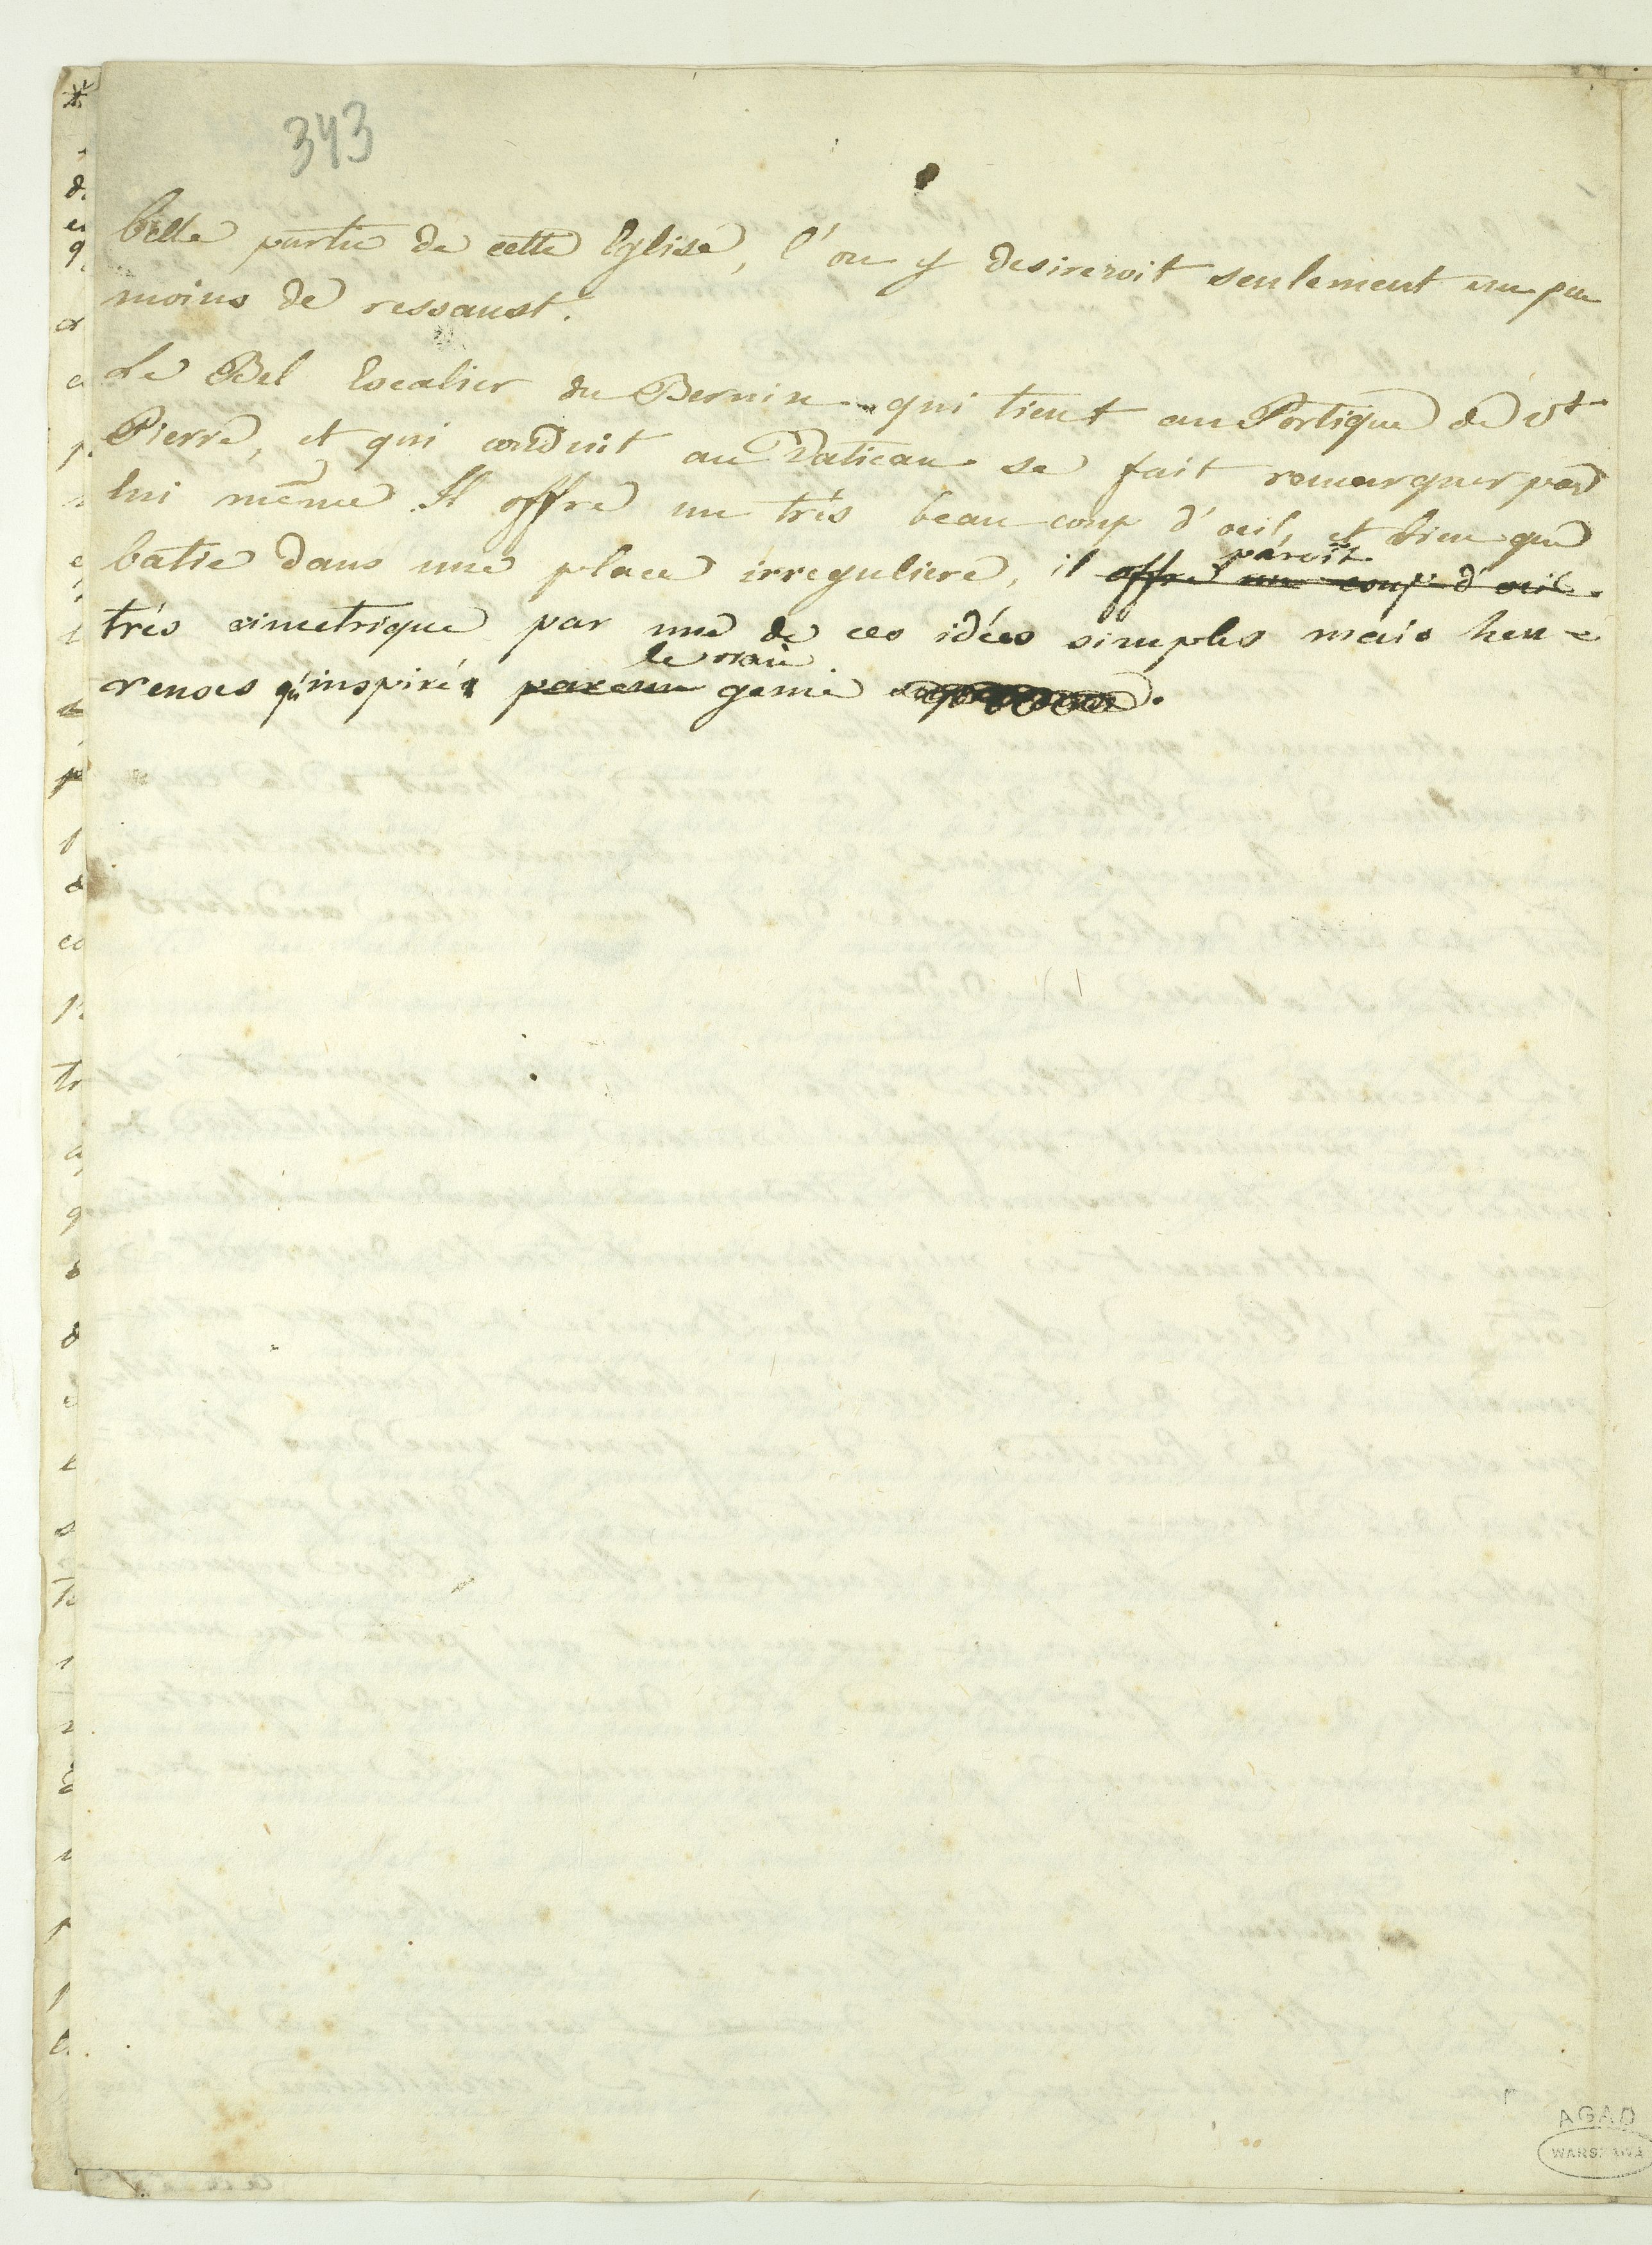 343
belle partie de cette Eglise, l'on y desireroit seulement un peu
moins de ressaust.
Le Bel Escalier du Bernin qui tient au Portique de St
Pierre, et qui conduit au Vatican se fait remarquer par
lui même Il offre un très beau coup d'oeil, et bien que
paroit
batie dans une place irreguliere, il offre un coup d'oeil
très simetrique par une de ces idées simples mais heu-
le vrai
reuses qu'inspire par un genie
AGAD
WARSZAWA